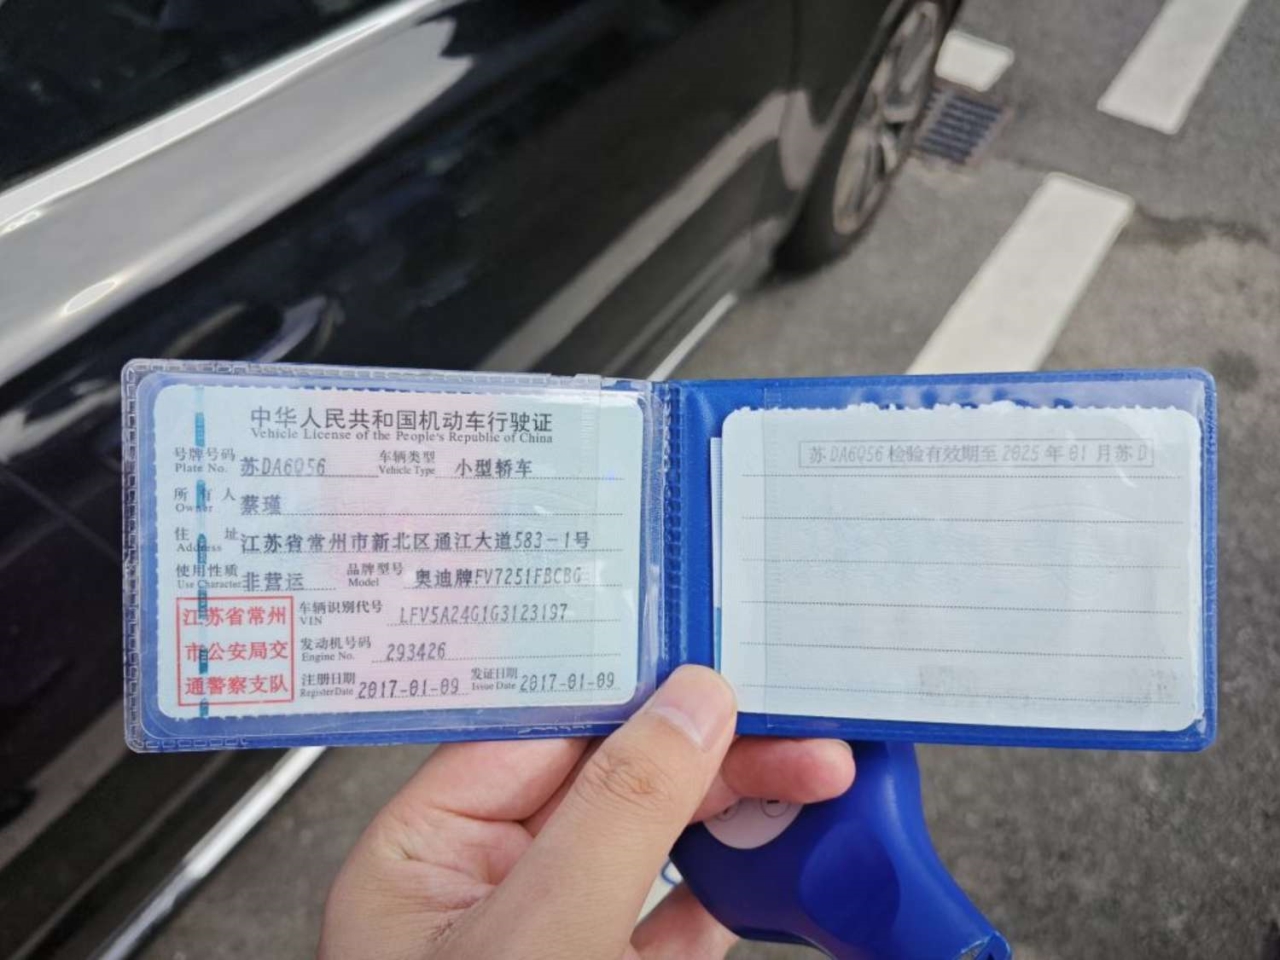 中华人民共和国机动车行驶证
Vehicle License of the People's Republic of China
号牌号码 Plate No. 苏DA6Q56 车辆类型 Vehicle Type 小型轿车
所有人 Owner 蔡瑾
住址 Address 江苏省常州市新北区通江大道583-1号
使用性质 Use Character 非营运 品牌型号 Model 奥迪牌FV7251FBCBG
江苏省常州
市公安局交
通警察支队
车辆识别代号 VIN LFV5A24G1G3123197
发动机号码 Engine No. 293426
注册日期 Register Date 2017-01-09 发证日期 Issue Date 2017-01-09
苏DA6Q56检验有效期至2025年01月苏D